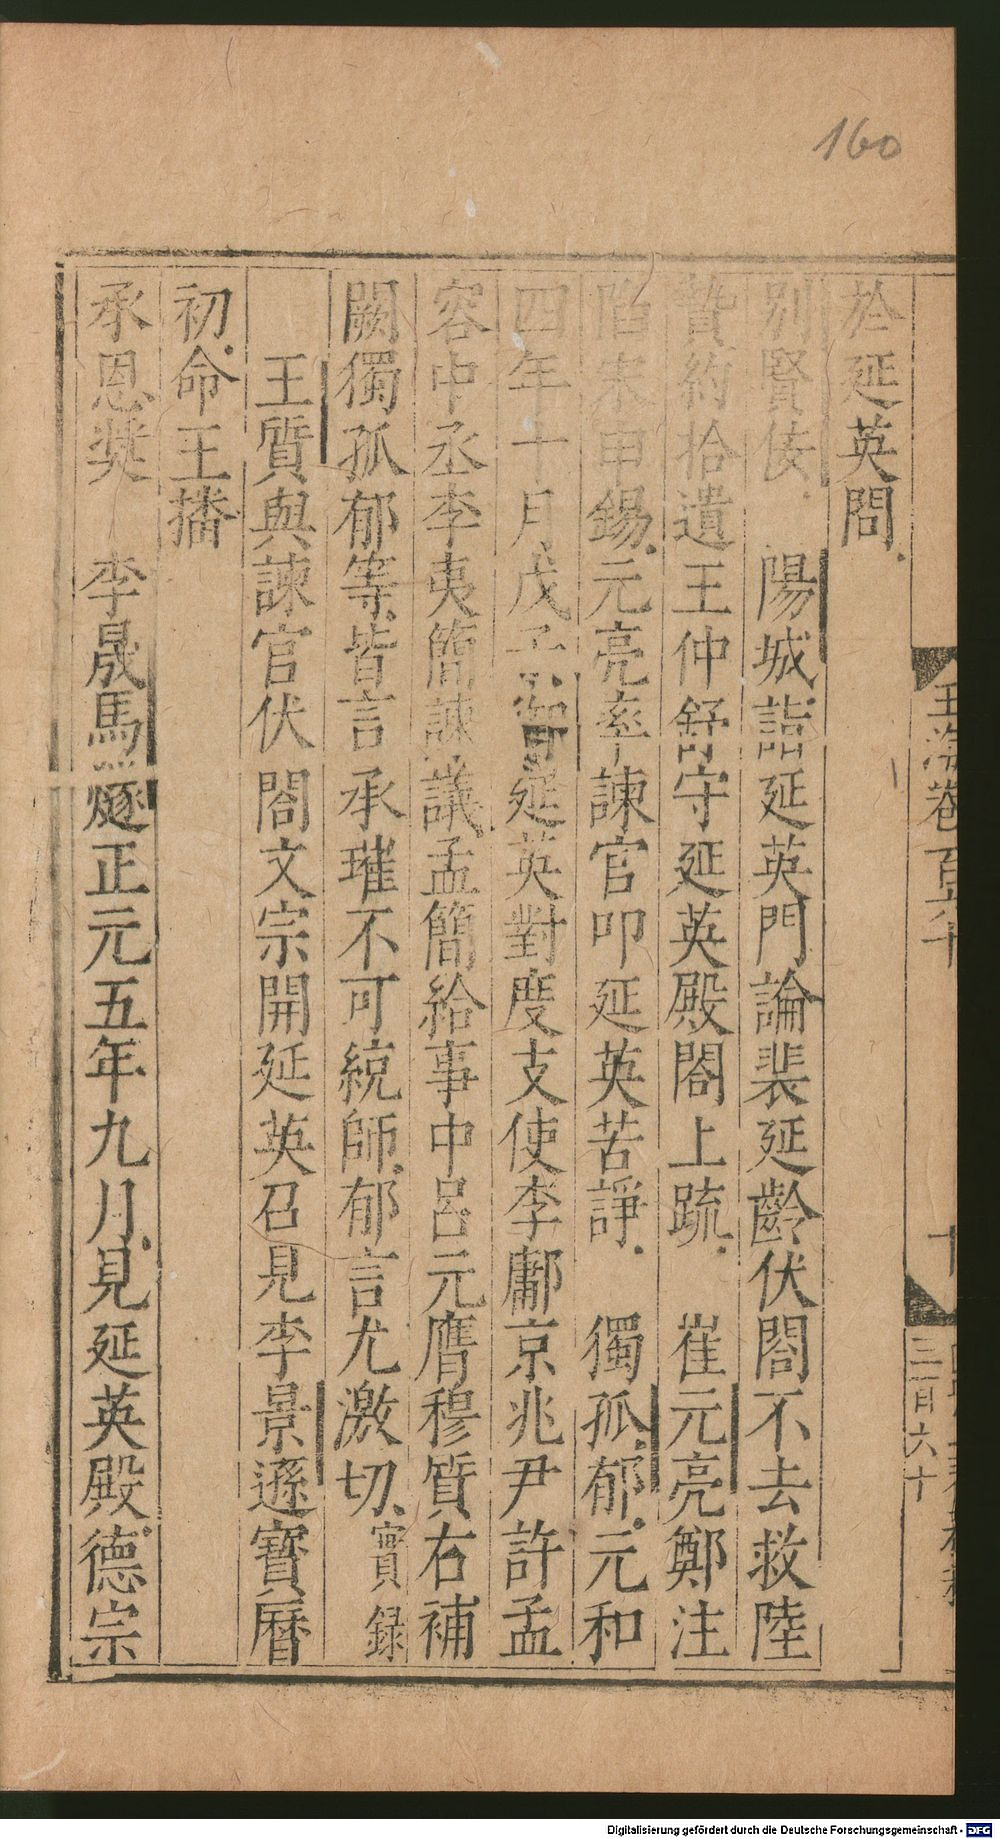 160
於延英問
別賢佞　陽城詣延英門論裴延齡伏閤不去救陸
贄約拾遺王仲舒守延英殿閤上疏　崔元亮鄭注
陷宋申錫元亮率諫官叩延英苦諍　獨孤郁元和
四年十月戊子御延英對度支使李鄘京兆尹許孟
容中丞李夷簡諫議孟簡給事中呂元膺穆質右補
闕獨孤郁等皆言承璀不可統師郁言尤激切實錄
王質與諫官伏閤文宗開延英召見李景遜寶曆
初命王播
承恩獎　李晟馬燧正元五年九月見延英殿德宗
玉海卷百六十
十
三百六十
Digitalisierung gefördert durch die Deutsche Forschungsgemeinschaft - DFG